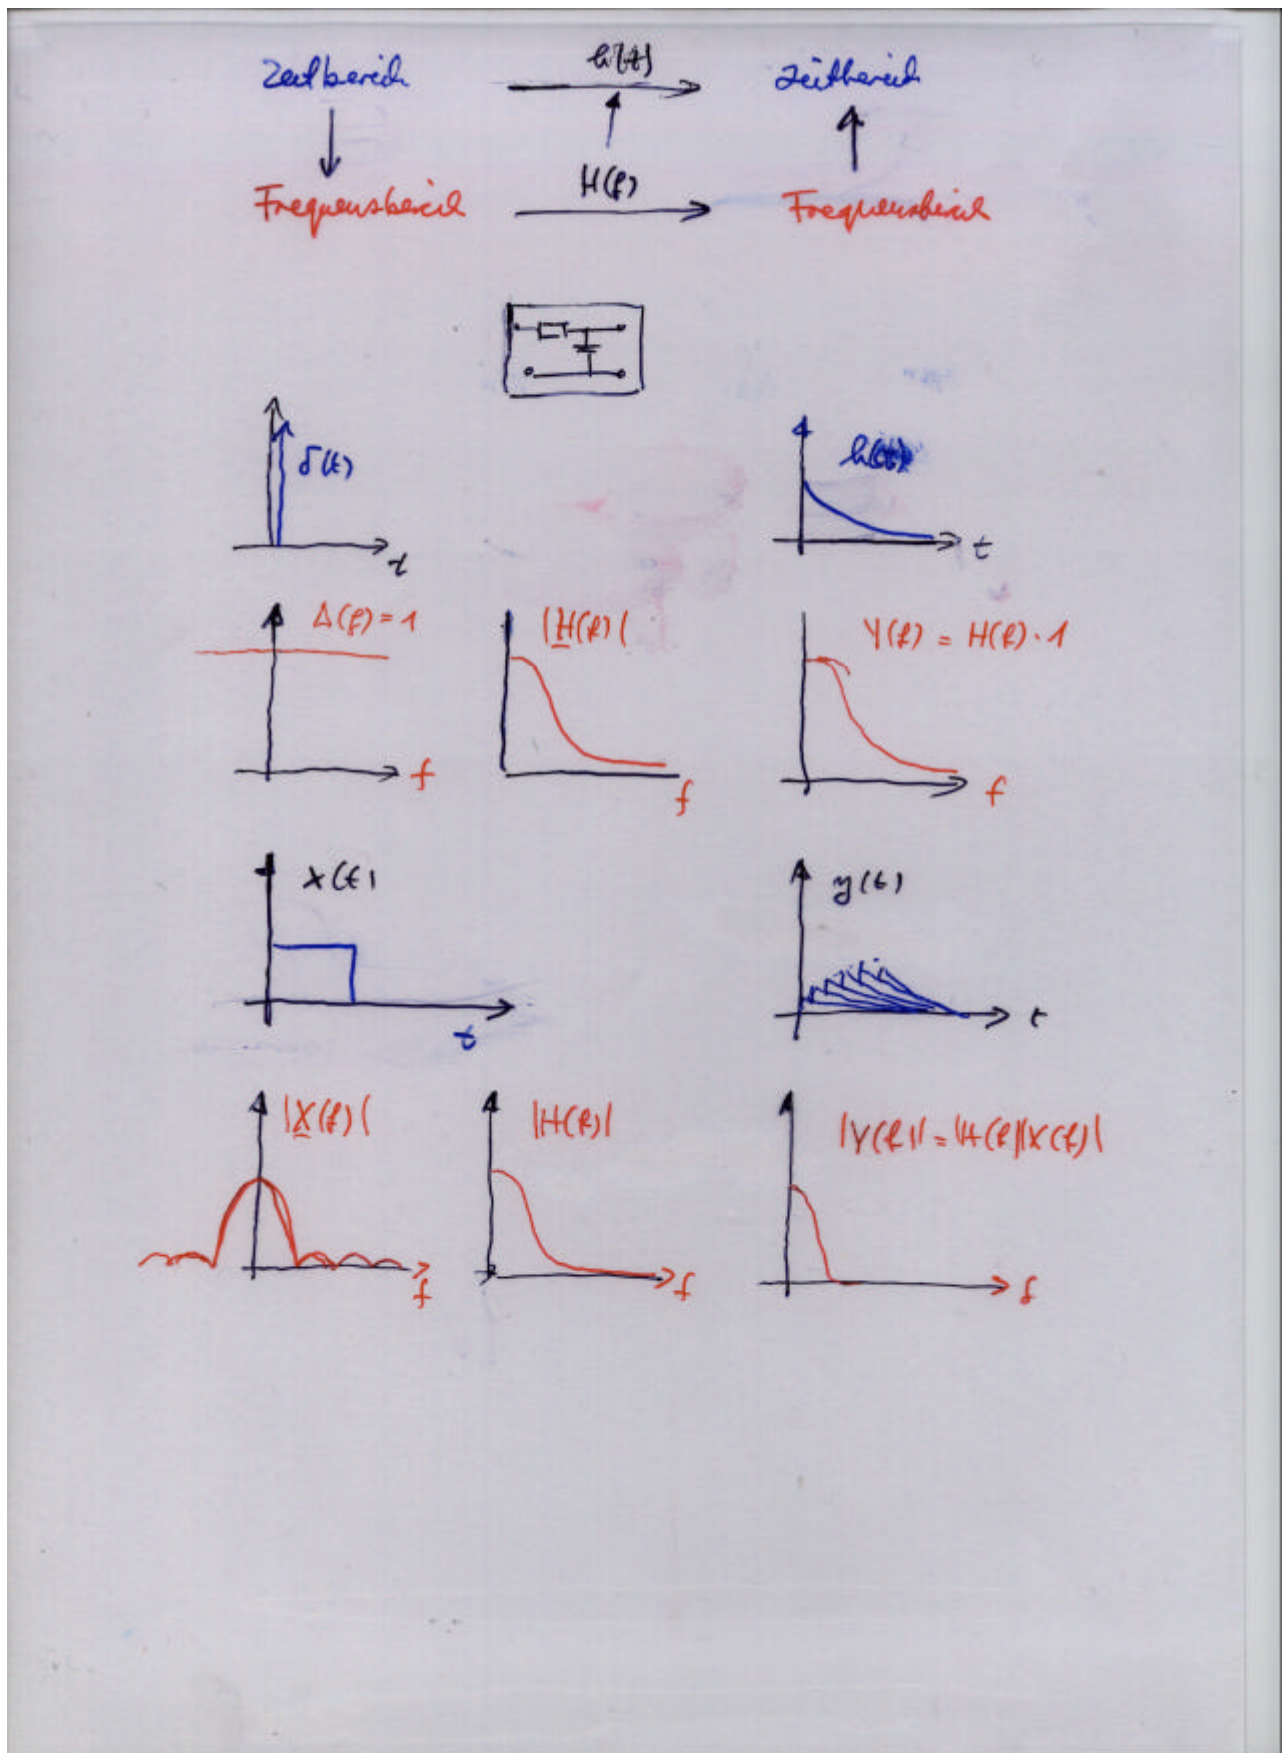 Zeitbereich h(t) Zeitbereich
Frequenzbereich H(f) Frequenzbereich
δ(t) h(t)
t t
Δ(f) = 1 |H(f)| Y(f) = H(f) · 1
f f f
x(t) y(t)
t t
|X(f)| |H(f)| |Y(f)| = |H(f)||X(f)|
f f f